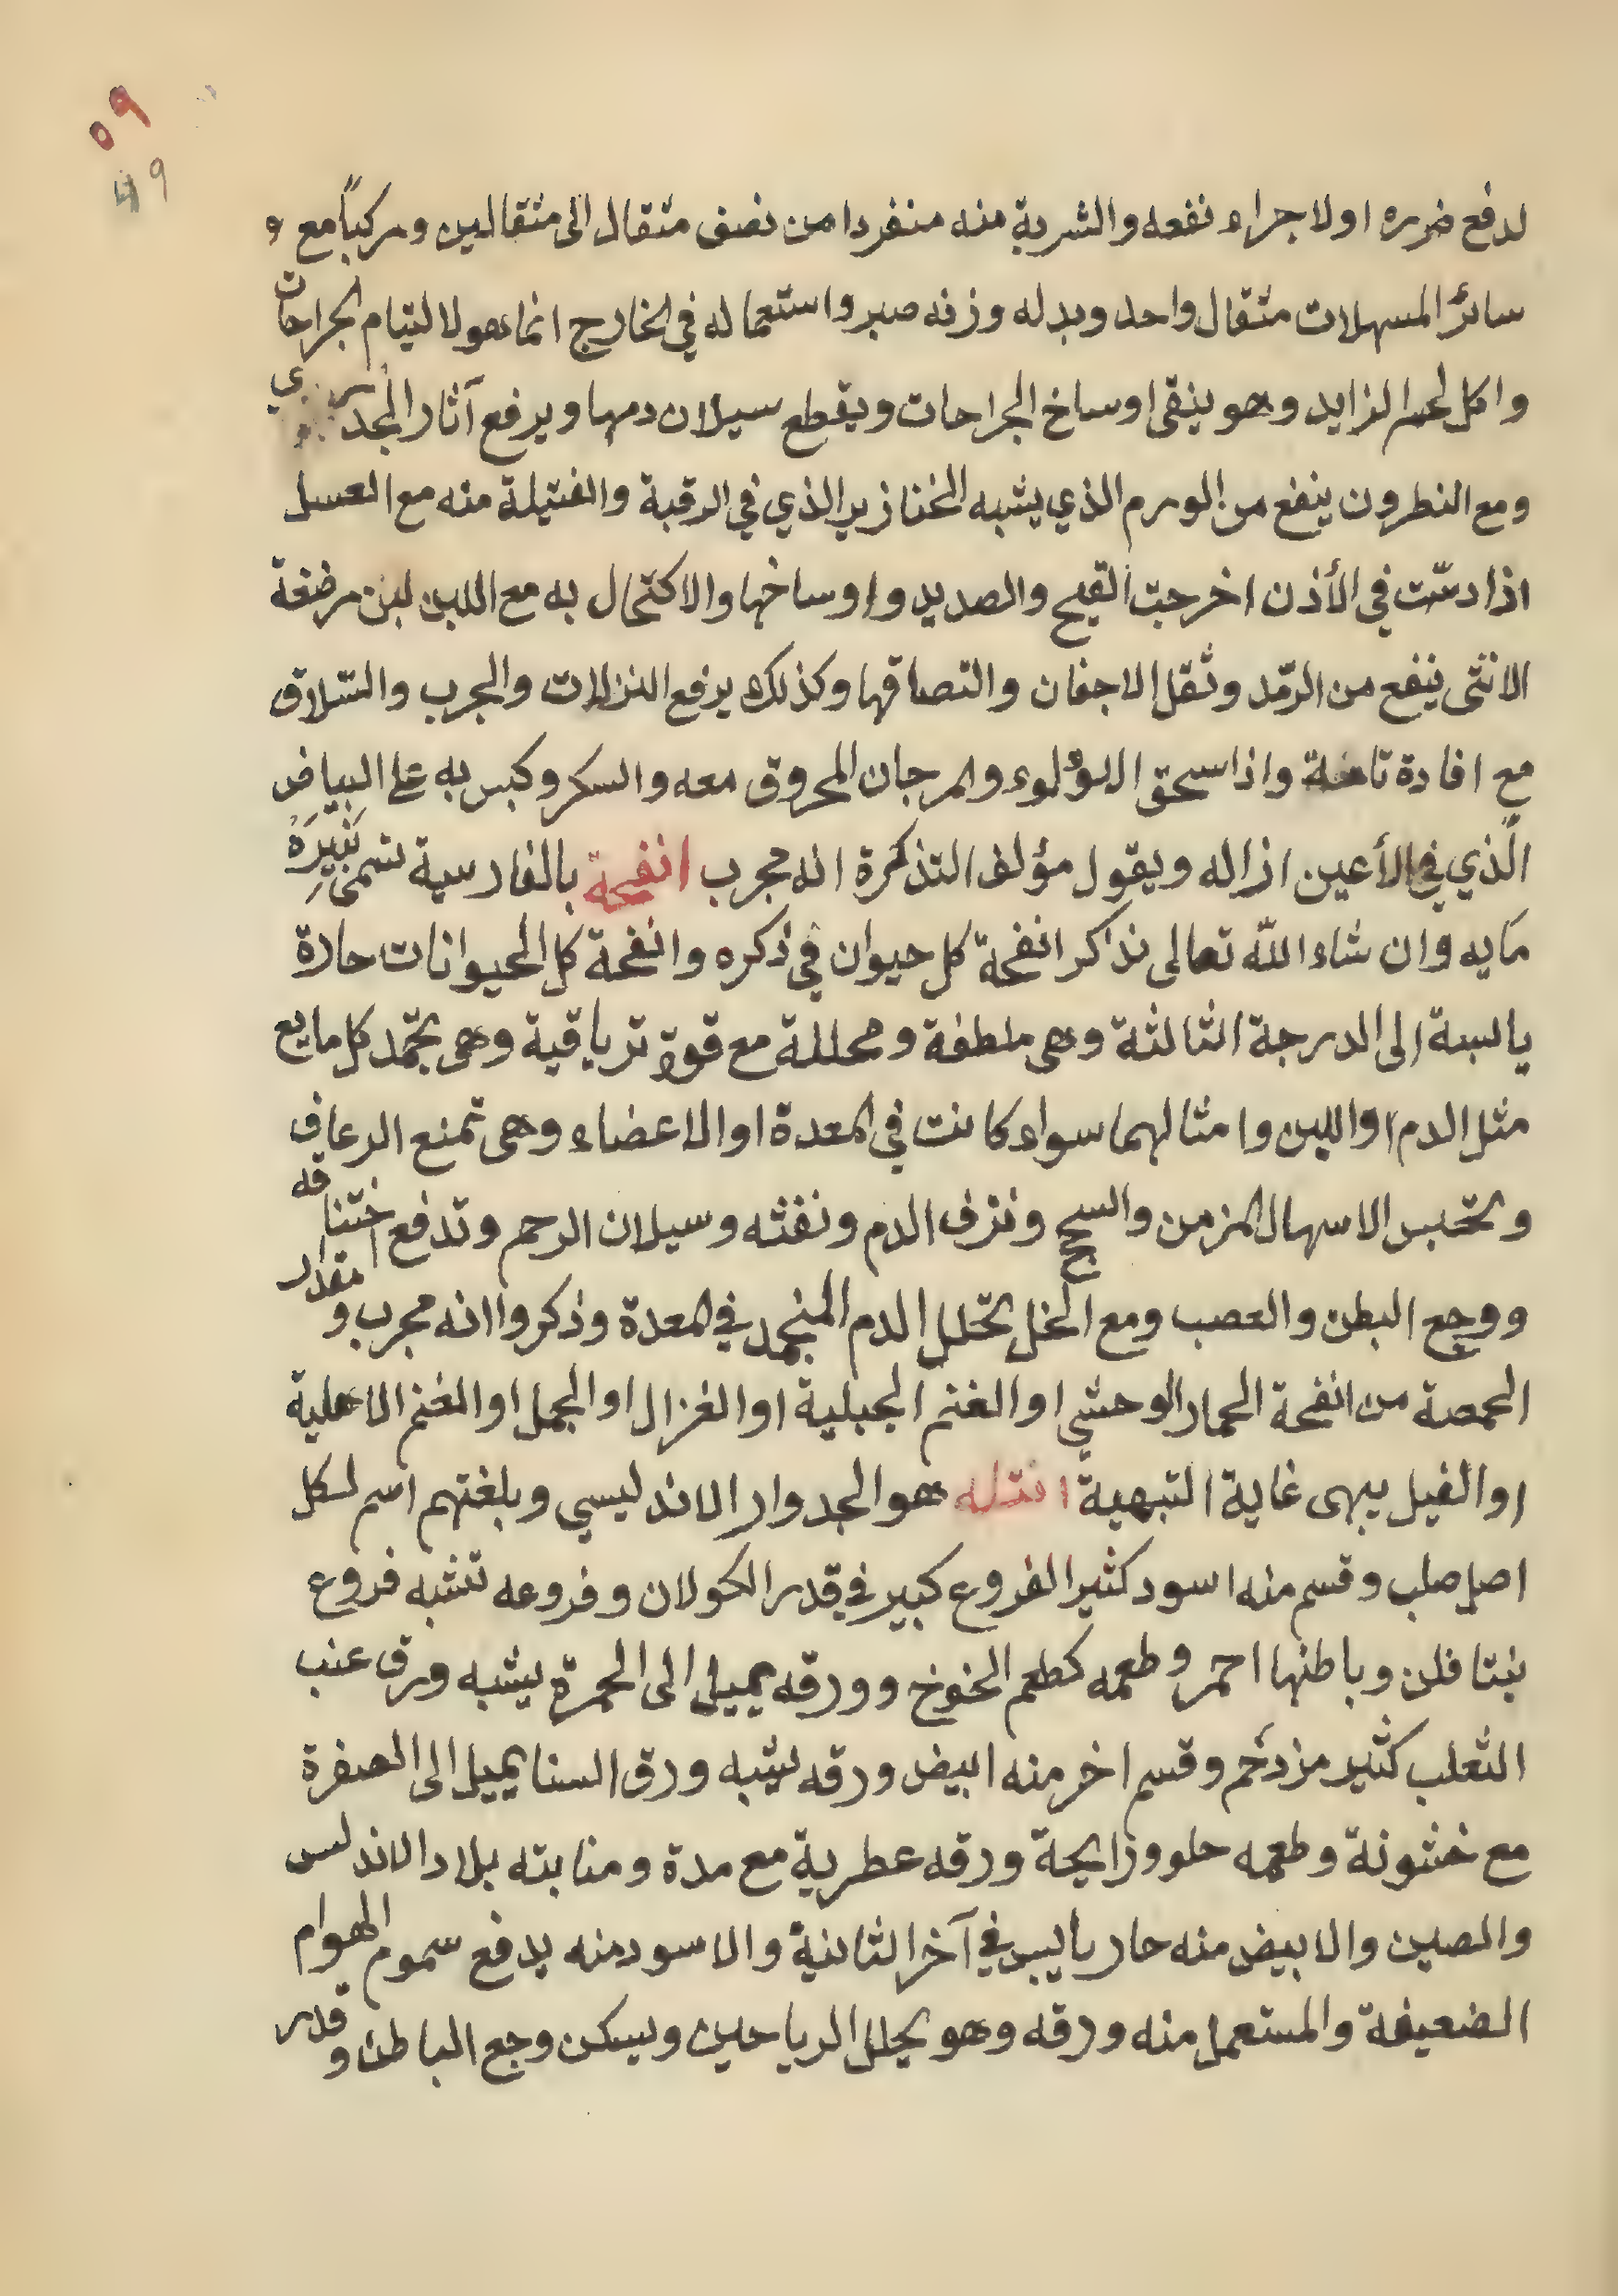 ٥٩
49
لدفع ضرره او لاجراء نفعه والشربة منه منفردا من نصف مثقال الى مثقالين ومركباً مع و
سائر المسهلات مثقال واحد وبدله وزنه صبر واستعماله في الخارج انما هو لالتيام الجراحات
واكل لحم الزايد وهو ينقى اوساخ الجراحات ويقطع سيلان دمها ويرفع آثار الجدري
ومع النطرون ينفع من الورم الذي يشبه الخنازير الذي في الرقبة والفتيلة منه مع العسل
اذا دسّت في الأذن اخرجت القيح والصديد واوساخها والاكتحال به مع اللبن لبن مرضعة
الانثى ينفع من الرمّد وثقل الاجفان والتصاقها وكذلك يرفع النزلات والجرب والسّلاق
مع افادة تامة واذا سحق اللؤلوء والمرجان المحروق معه والسكر وكبس به على البياض
الّذي في الأعين ازاله ويقول مؤلف التذكرة انه مجرب انفحة بالفارسية تسمى پَنِيرَهْ
مَايه وان شاء اللّه تعالى نذكر انفحة كل حيوان في ذكره وانفحة كل الحيوانات حارة
يابسة الى الدرجة الثالثة وهى ملطفة ومحللة مع قوة ترياقية وهى تجمّد كل مايع
مثل الدم اواللبن وامثالهما سواء كانت في المعدة او الاعضاء وهى تمنع الرعاف
وتحبس الاسهال المزمن والسحج ونزف الدم ونفثه وسيلان الرحم وتدفع اختناقه
ووجع البطن والعصب ومع الخل تحلل الدم المنجمد في المعدة وذكروا انه مجرب ومقدار
الحمصة من انفحة الحمار الوحشي او الغنم الجبلية او الغزال او الجمل او الغنم الاهلية
او الفيل يبهى غاية التبهية انتله هو الجدوار الاندليسي وبلغتهم اسم لكل
اصل صلب وقسم منه اسود كثير الفروع كبير في قدر الكولان وفروعه تشبه فروع
بنتافلن وباطنها احمر وطعمه كطعم الخوخ وورقه يميل الى الحمرة يشبه ورق عنب
الثعلب كثير مزدحم وقسم اخر منه ابيض ورقه يشبه ورق السنا يميل الى الصفرة
مع خشونة وطعمه حلو ورايحة ورقه عطرية مع مدة ومنابته بلاد الاندلس
والصين والابيض منه حار يابس في آخر الثانية والاسود منه يدفع سموم الهوام
الضعيفة والمستعمل منه ورقه وهو يحلل الرياحين ويسكن وجع الباطن وقدر